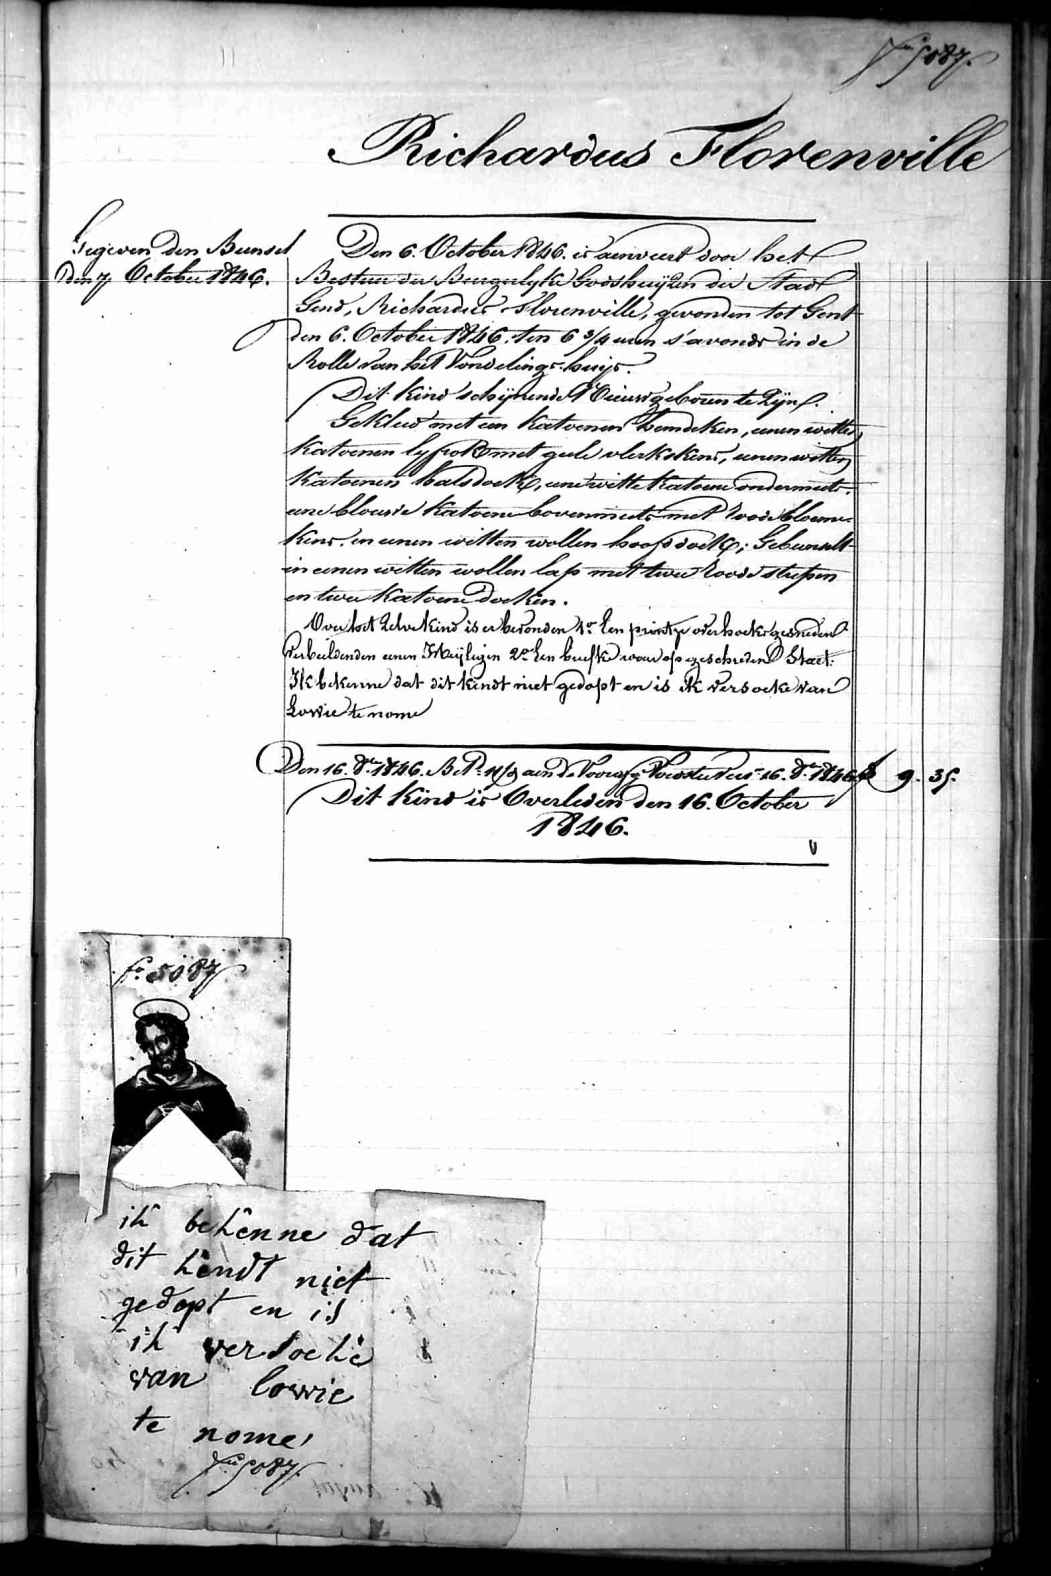 fo 5087.
Richardus Florenville
Gegeven den Bunsel
den 7 October 1846.
Den 6. October 1846. is aenveert door het
Bestuur der Burgerlyke Godshuijzen der Stad
Gend, Richardus Florenville, gevonden tot Gent
den 6. October 1846. ten 6 3/4 uren s'avonds in de
Rolle van het Vondelings-huijs.
Dit Kind schijnende Nieuwgeboren te Zijn.
Gekleed met een Katoenen hemdeken, eenen witten
Katoenen lyfrok met geele vlerkskens, eenen witten
Katoenen halsdoek, eene witte Katoene ondermuts.
eene blouwe Katoene bovenmuts met roode bloeme-
kens. en eenen witten wollen hoofddoek; Gebunselt
in eenen witten wollen lap met twee roode strepen
en twee Katoene doeken.
Over het Zelve Kind is er bevonden 1o Een printje overhoeks gesneden
verbeeldenden eenen Heijligen 2o Een briefke waer op geschreven Staet:
Ik bekenne dat dit kendt niet gedopt en is ik versoeke van
Lowie te nome
Den 16. 8er 1846. Bet. aen de 16. 8er 1846 f 9. 35.
Dit Kind is Overleden den 16. October
1846.
fo 5087
ik bekenne dat
dit kendt niet
gedopt en is
ik versoeke
van lowie
te nome
fo 5087.